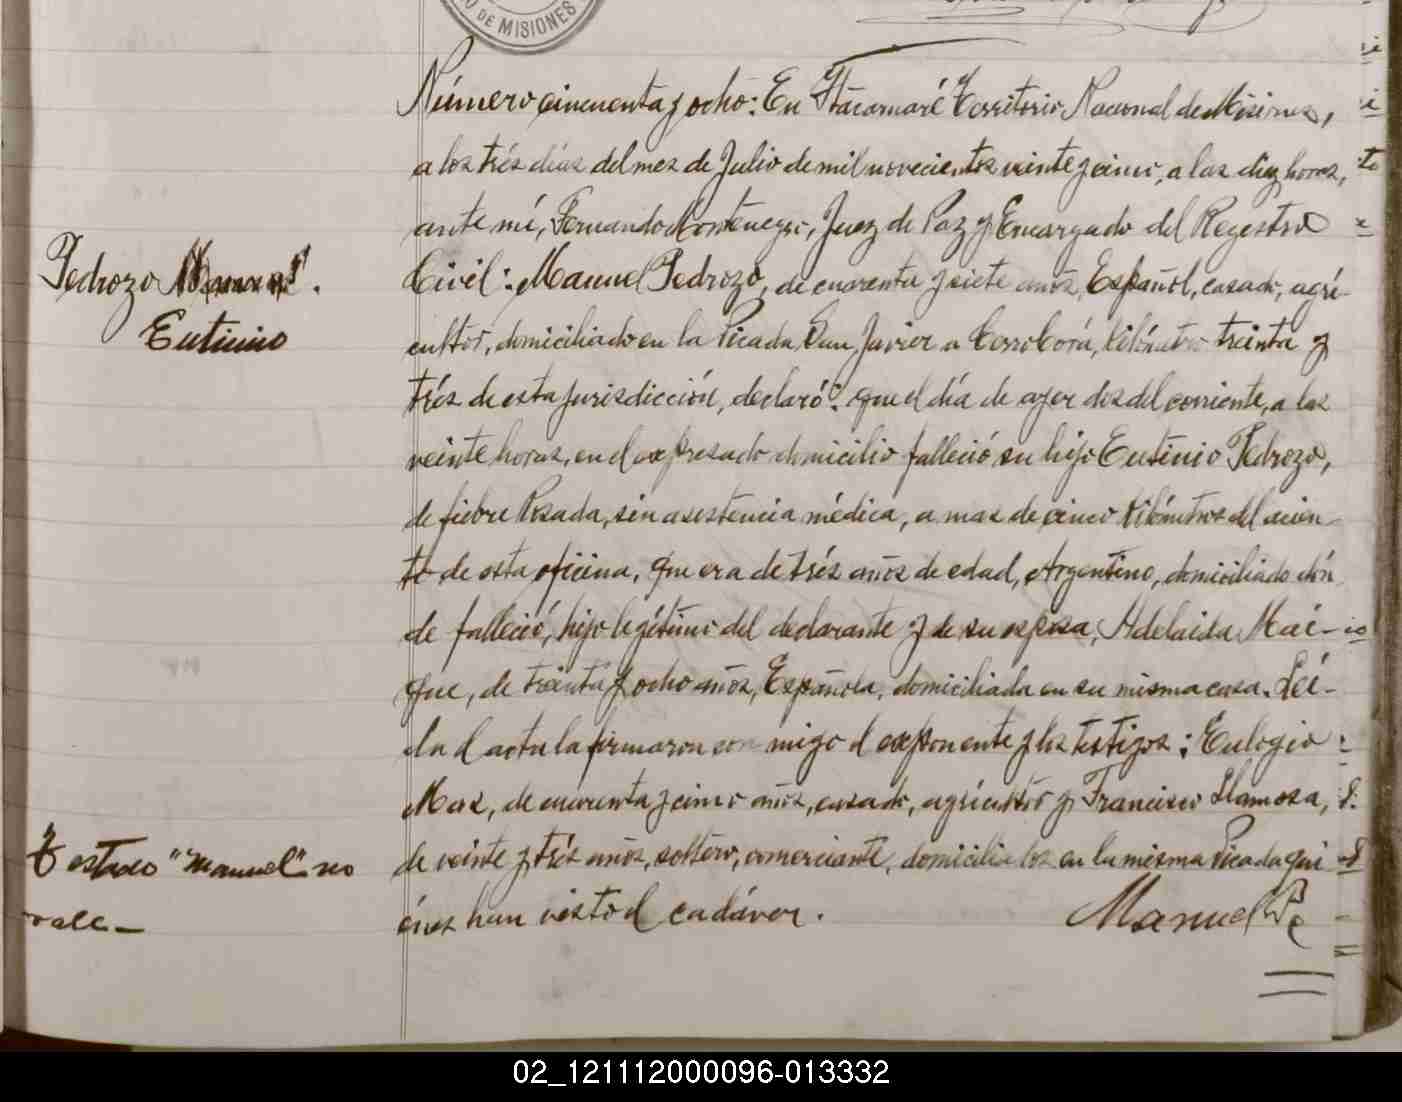 DE MISIONES
Número cincuenta y ocho: En Itacaruaré Territorio Nacional de Misiones,
a los trés días del mes de Julio de mil novecientos veinte y cinco, a las diez horas,
ante mí, Fernando Montenegro, Juez de Paz y Encargado del Registro
Pedrozo Manuel.
Civil: Manuel Pedrozo, de cuarenta y siete años, Español, casado, agri-
Eutinio
cultor, domiciliado en la Picada San Javier a Cerro Corá, kilómetro treinta y
trés de esta jurisdicción, declaró: que el día de ayer dos del corriente, a las
veinte horas, en el expresado domicilio falleció su hijo Eutinio Pedrozo,
de fiebre Rosada, sin asistencia médica, a mas de cinco kilómetros del acien-
to de esta oficina, que era de trés años de edad, Argentino, domiciliado dón
de falleció, hijo legítimo del declarante y de su esposa, Adelaida Mai-
que, de treinta y ocho años, Española, domiciliada en su misma casa. Léi-
da el acta la firmaron con migo el exponente y los testigos: Eulogio
Mas, de cuarenta y cinco años, casado, agricultor y Francisco Llamosa,
Testado "Manuel" no
de veinte y trés años, soltero, comerciante, domiciliados en la misma Picada qui
vale.-
énes han visto el cadáver. Manuel Pe
02_121112000096-013332